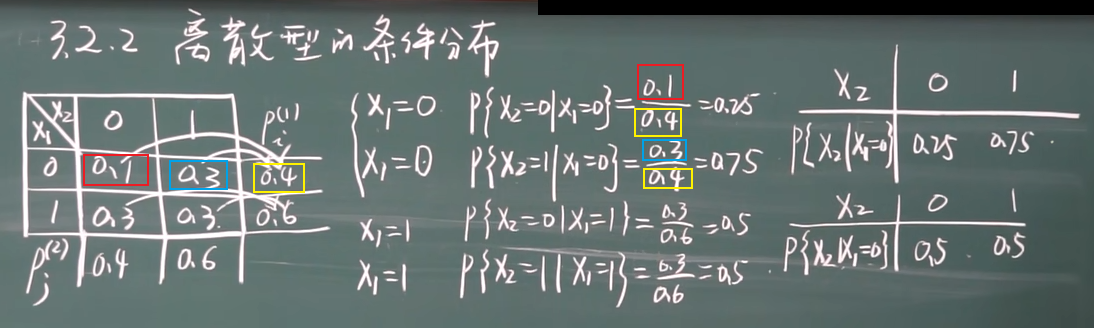 3.2.2 离散型的条件分布
X₁ X₂ 0 1 p_i^{(1)}
0 0.1 0.3 0.4
1 0.3 0.3 0.6
p_j^{(2)} 0.4 0.6
X₁=0 P{X₂=0|X₁=0}=0.1/0.4=0.25
X₁=0 P{X₂=1|X₁=0}=0.3/0.4=0.75
X₁=1 P{X₂=0|X₁=1}=0.3/0.6=0.5
X₁=1 P{X₂=1|X₁=1}=0.3/0.6=0.5
X₂ 0 1
P{X₂|X₁=0} 0.25 0.75
X₂ 0 1
P{X₂|X₁=0} 0.5 0.5